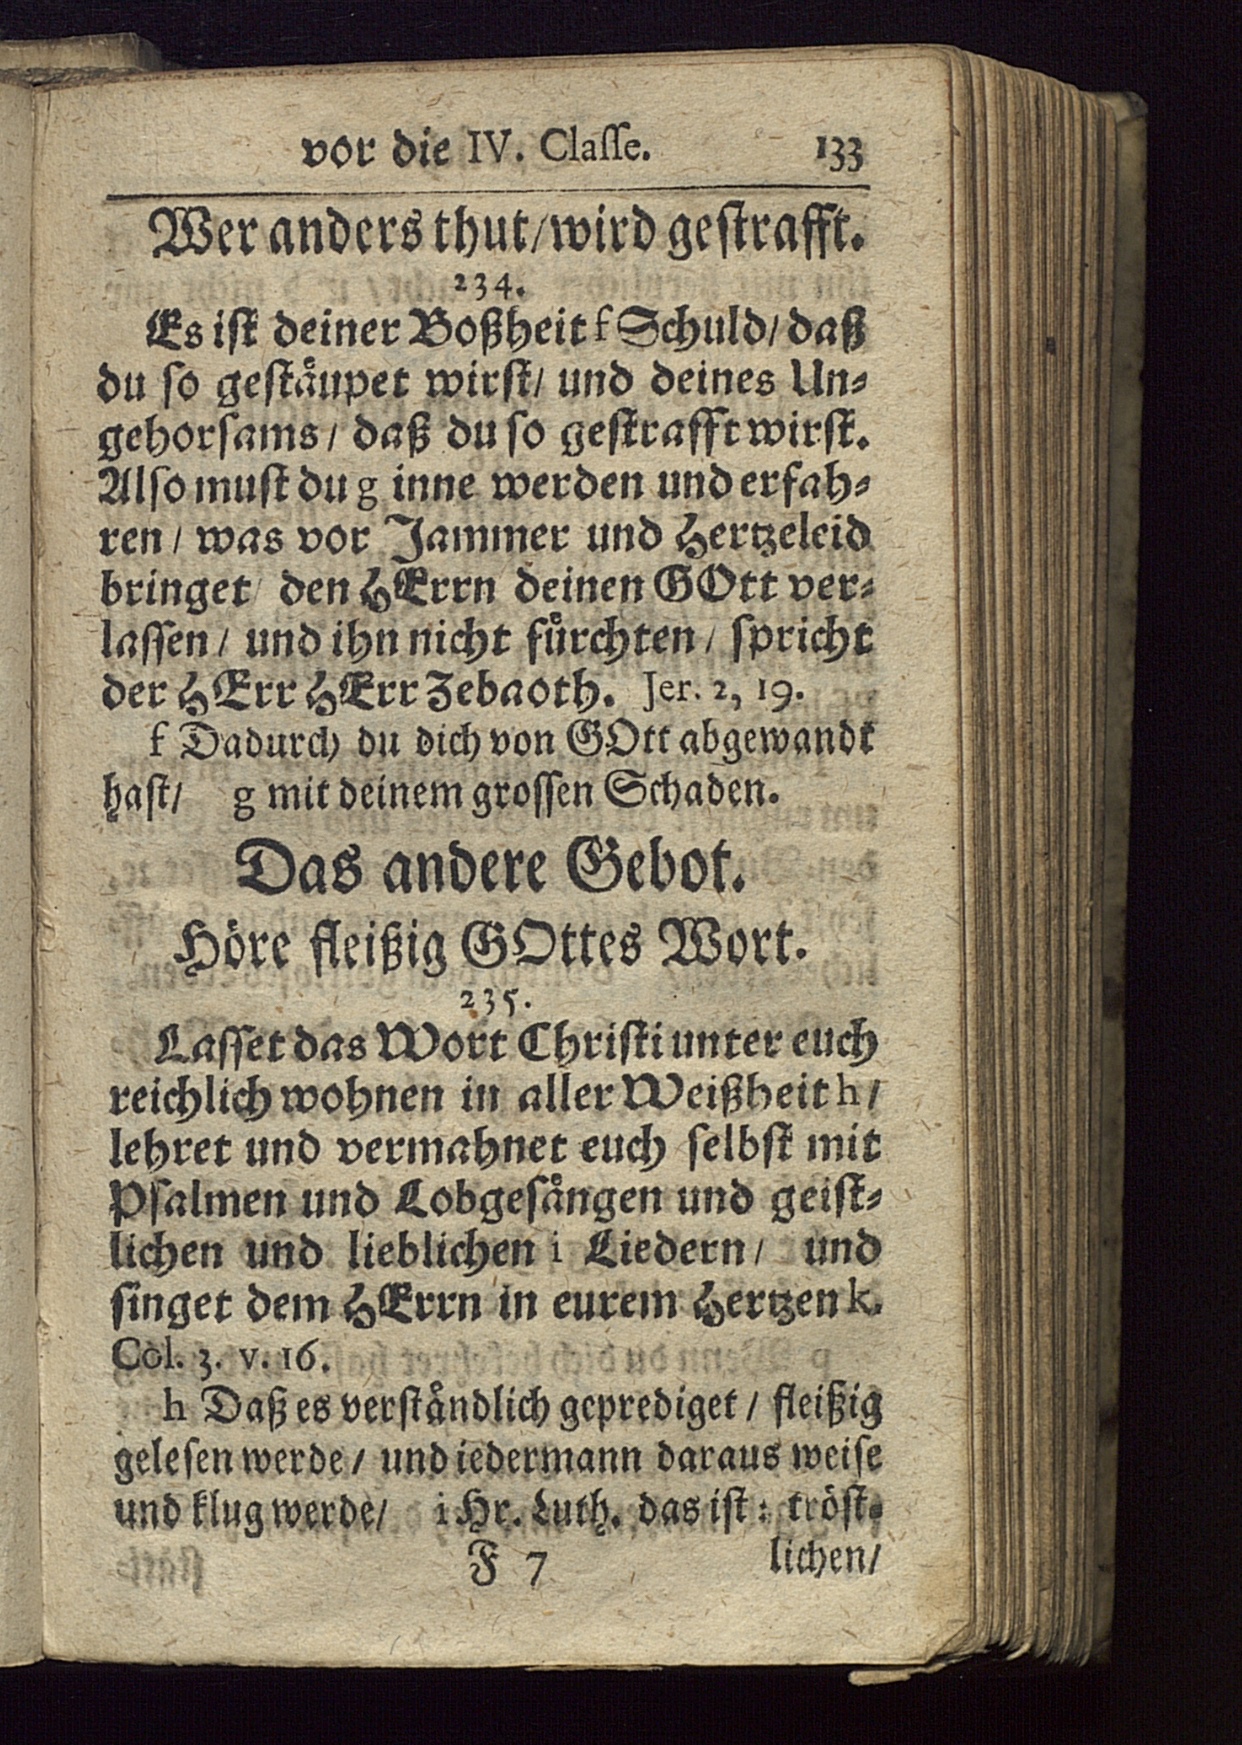 vor die IV. Claſſe. 133
Wer anders thut/wird geſtrafft.
234.
Es iſt deiner Boßheit f Schuld/ daß
du ſo geſtäupet wirſt/ und deines Un⸗
gehorſams/ daß du ſo geſtrafft wirſt.
Alſo muſt du g inne werden und erfah⸗
ren/ was vor Jammer und Hertzeleid
bringet/ den HErrn deinen GOtt ver⸗
laſſen/ und ihn nicht fürchten/ ſpricht
der HErr HErr Zebaoth. Jer. 2, 19.
f Dadurch du dich von GOtt abgewandt
haſt/ g mit deinem groſſen Schaden.
Das andere Gebot.
Höre fleißig GOttes Wort.
235.
Laſſet das Wort Chriſti unter euch
reichlich wohnen in aller Weißheit h/
lehret und vermahnet euch ſelbſt mit
Pſalmen und Lobgeſängen und geiſt⸗
lichen und lieblichen i Liedern/ und
ſinget dem HErrn in eurem Hertzen k.
Col. 3. v. 16.
h Daß es verſtändlich geprediget/ fleißig
geleſen werde/ und iedermann daraus weiſe
und klug werde/ i Hr. Luth. das iſt: tröſt⸗
F 7 lichen/